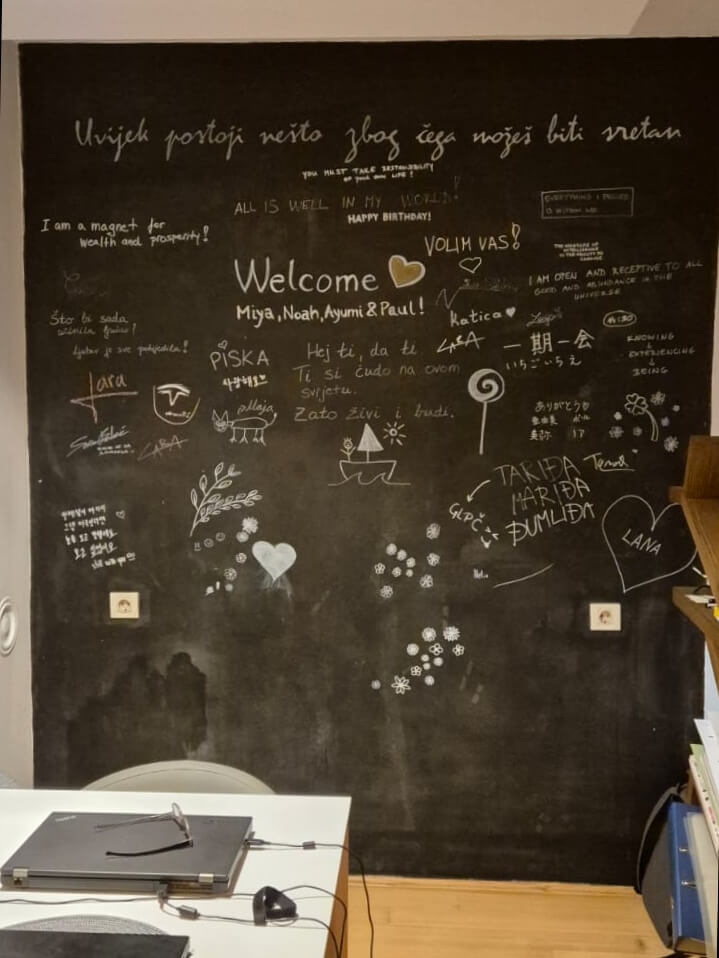 Uvijek postoji nešto zbog čega možeš biti sretan
YOU MUST TAKE RESPONSIBILITY
OF YOUR OWN LIFE!
ALL IS WELL IN MY WORLD!
HAPPY BIRTHDAY!
EVERYTHING I NEED
IS WITHIN ME
I am a magnet for
wealth and prosperity!
VOLIM VAS!
THE MEASURE OF
INTELLIGENCE
IS THE ABILITY TO
CHANGE
Welcome
Miya, Noah, Ayumi & Paul!
I AM OPEN AND RECEPTIVE TO ALL
GOOD AND ABUNDANCE IN THE
UNIVERSE
Što bi sada
učinila ljubav?
ljubav je sve pobijedila!
Katica
LARA
一期一会
いちごいちえ
KNOWING
EXPERIENCING
BEING
PISKA
사랑해요
Hej ti, da ti.
Ti si čudo na ovom
svijetu.
Zato živi i budi.
Jara
LARA
ありがとうり
TARIĐA
MARIĐA
ĐUMLIĐA
GLPČ
LANA